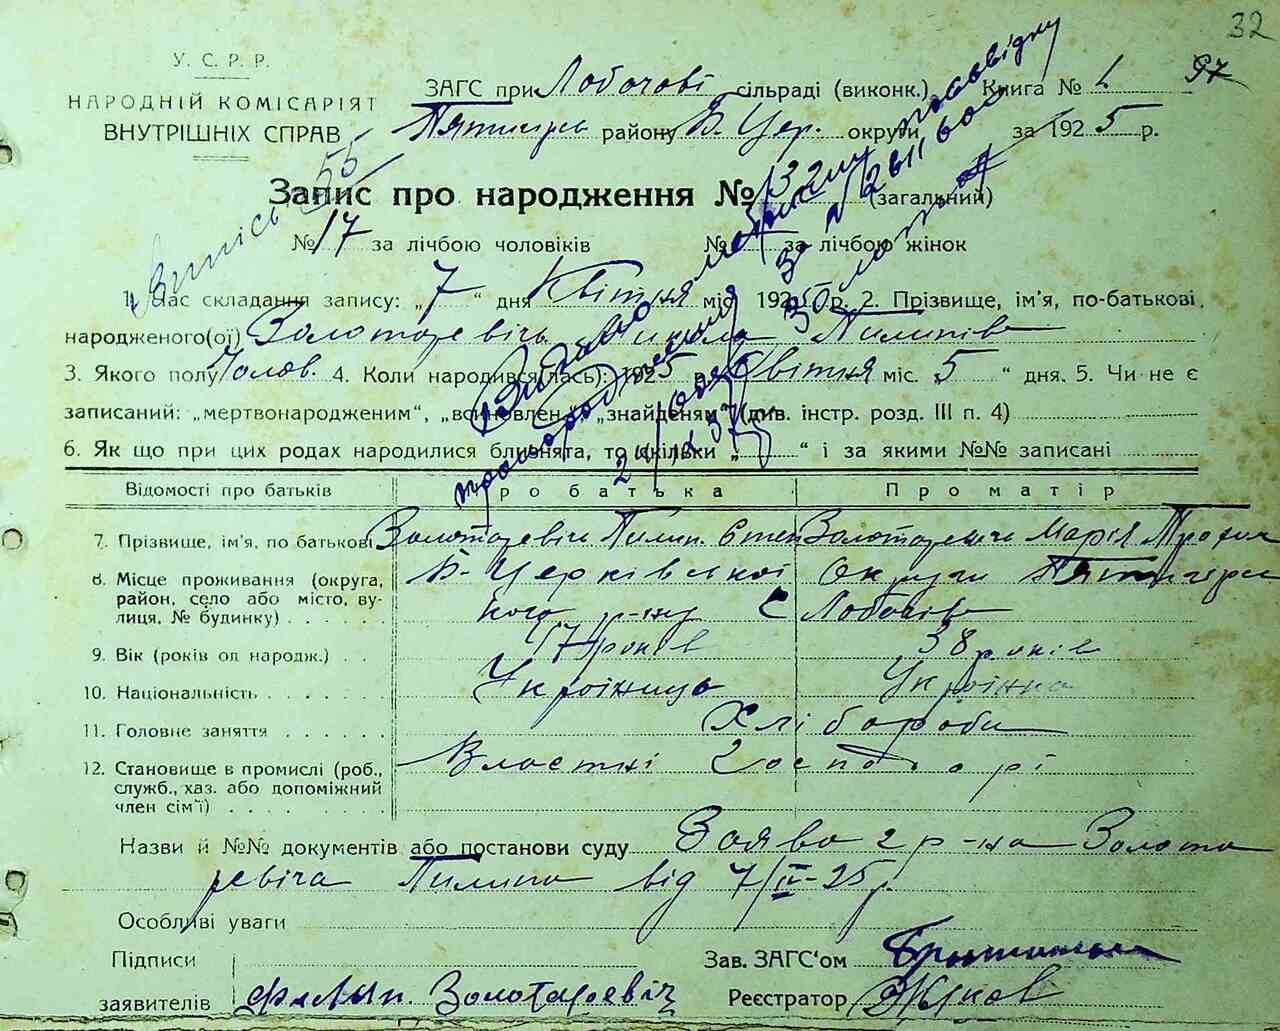 32
У. С. Р. Р.
НАРОДНІЙ КОМІСАРІЯТ
ВНУТРІШНІХ СПРАВ
ЗАГС при Лобочові сільраді (виконк.) Книга № 1 97
Пятигір району Б. Цер. округи за 1925 р.
Запис про народження № 32 (загальний)
№ 17 за лічбою чоловіків № за лічбою жінок
Випись 55
1. Час складання запису: „7 “ дня Квітня міс. 1925 р. 2. Прізвище, ім'я, по-батькові
народженого(ої) Золотаревічь Микола Пилипів
3. Якого полу Чолов. 4. Коли народився(лась): 1925 р. Квітня міс. „5 “ дня. 5. Чи не є
записаний: „мертвонародженим“, „воновлен „знайденям“ (див. інстр. розд. III п. 4)
6. Як що при цих родах народилися близнята, то скільки „ “ і за якими №№ записані
Видано
за № 2611601
24/IX 37
Відомості про батьків Про батька Про матір
7. Прізвище, ім'я, по батькові Золотаревічь Пилип. Степ Золотаревичь Марія Трохим
8. Місце проживання (округа, район, село або місто, вулиця, № будинку) Б-Церківської Округи Пятигорс
кого р-ну С Лобочів
9. Вік (років од народж.) 47 років 38 років
10. Національність Українць Українка
11. Головне заняття Хлібороби
12. Становище в промислі (роб., служб., хаз. або допоміжний член сім'ї) Властні Господарі
Назви й №№ документів або постанови суду Заява гр-на Золота
ревіча Пилипа від 7/IV-25 р.
Особливі уваги
Підписи Зав. ЗАГС'ом
заявителів Филип. Золотаревіч Реєстратор